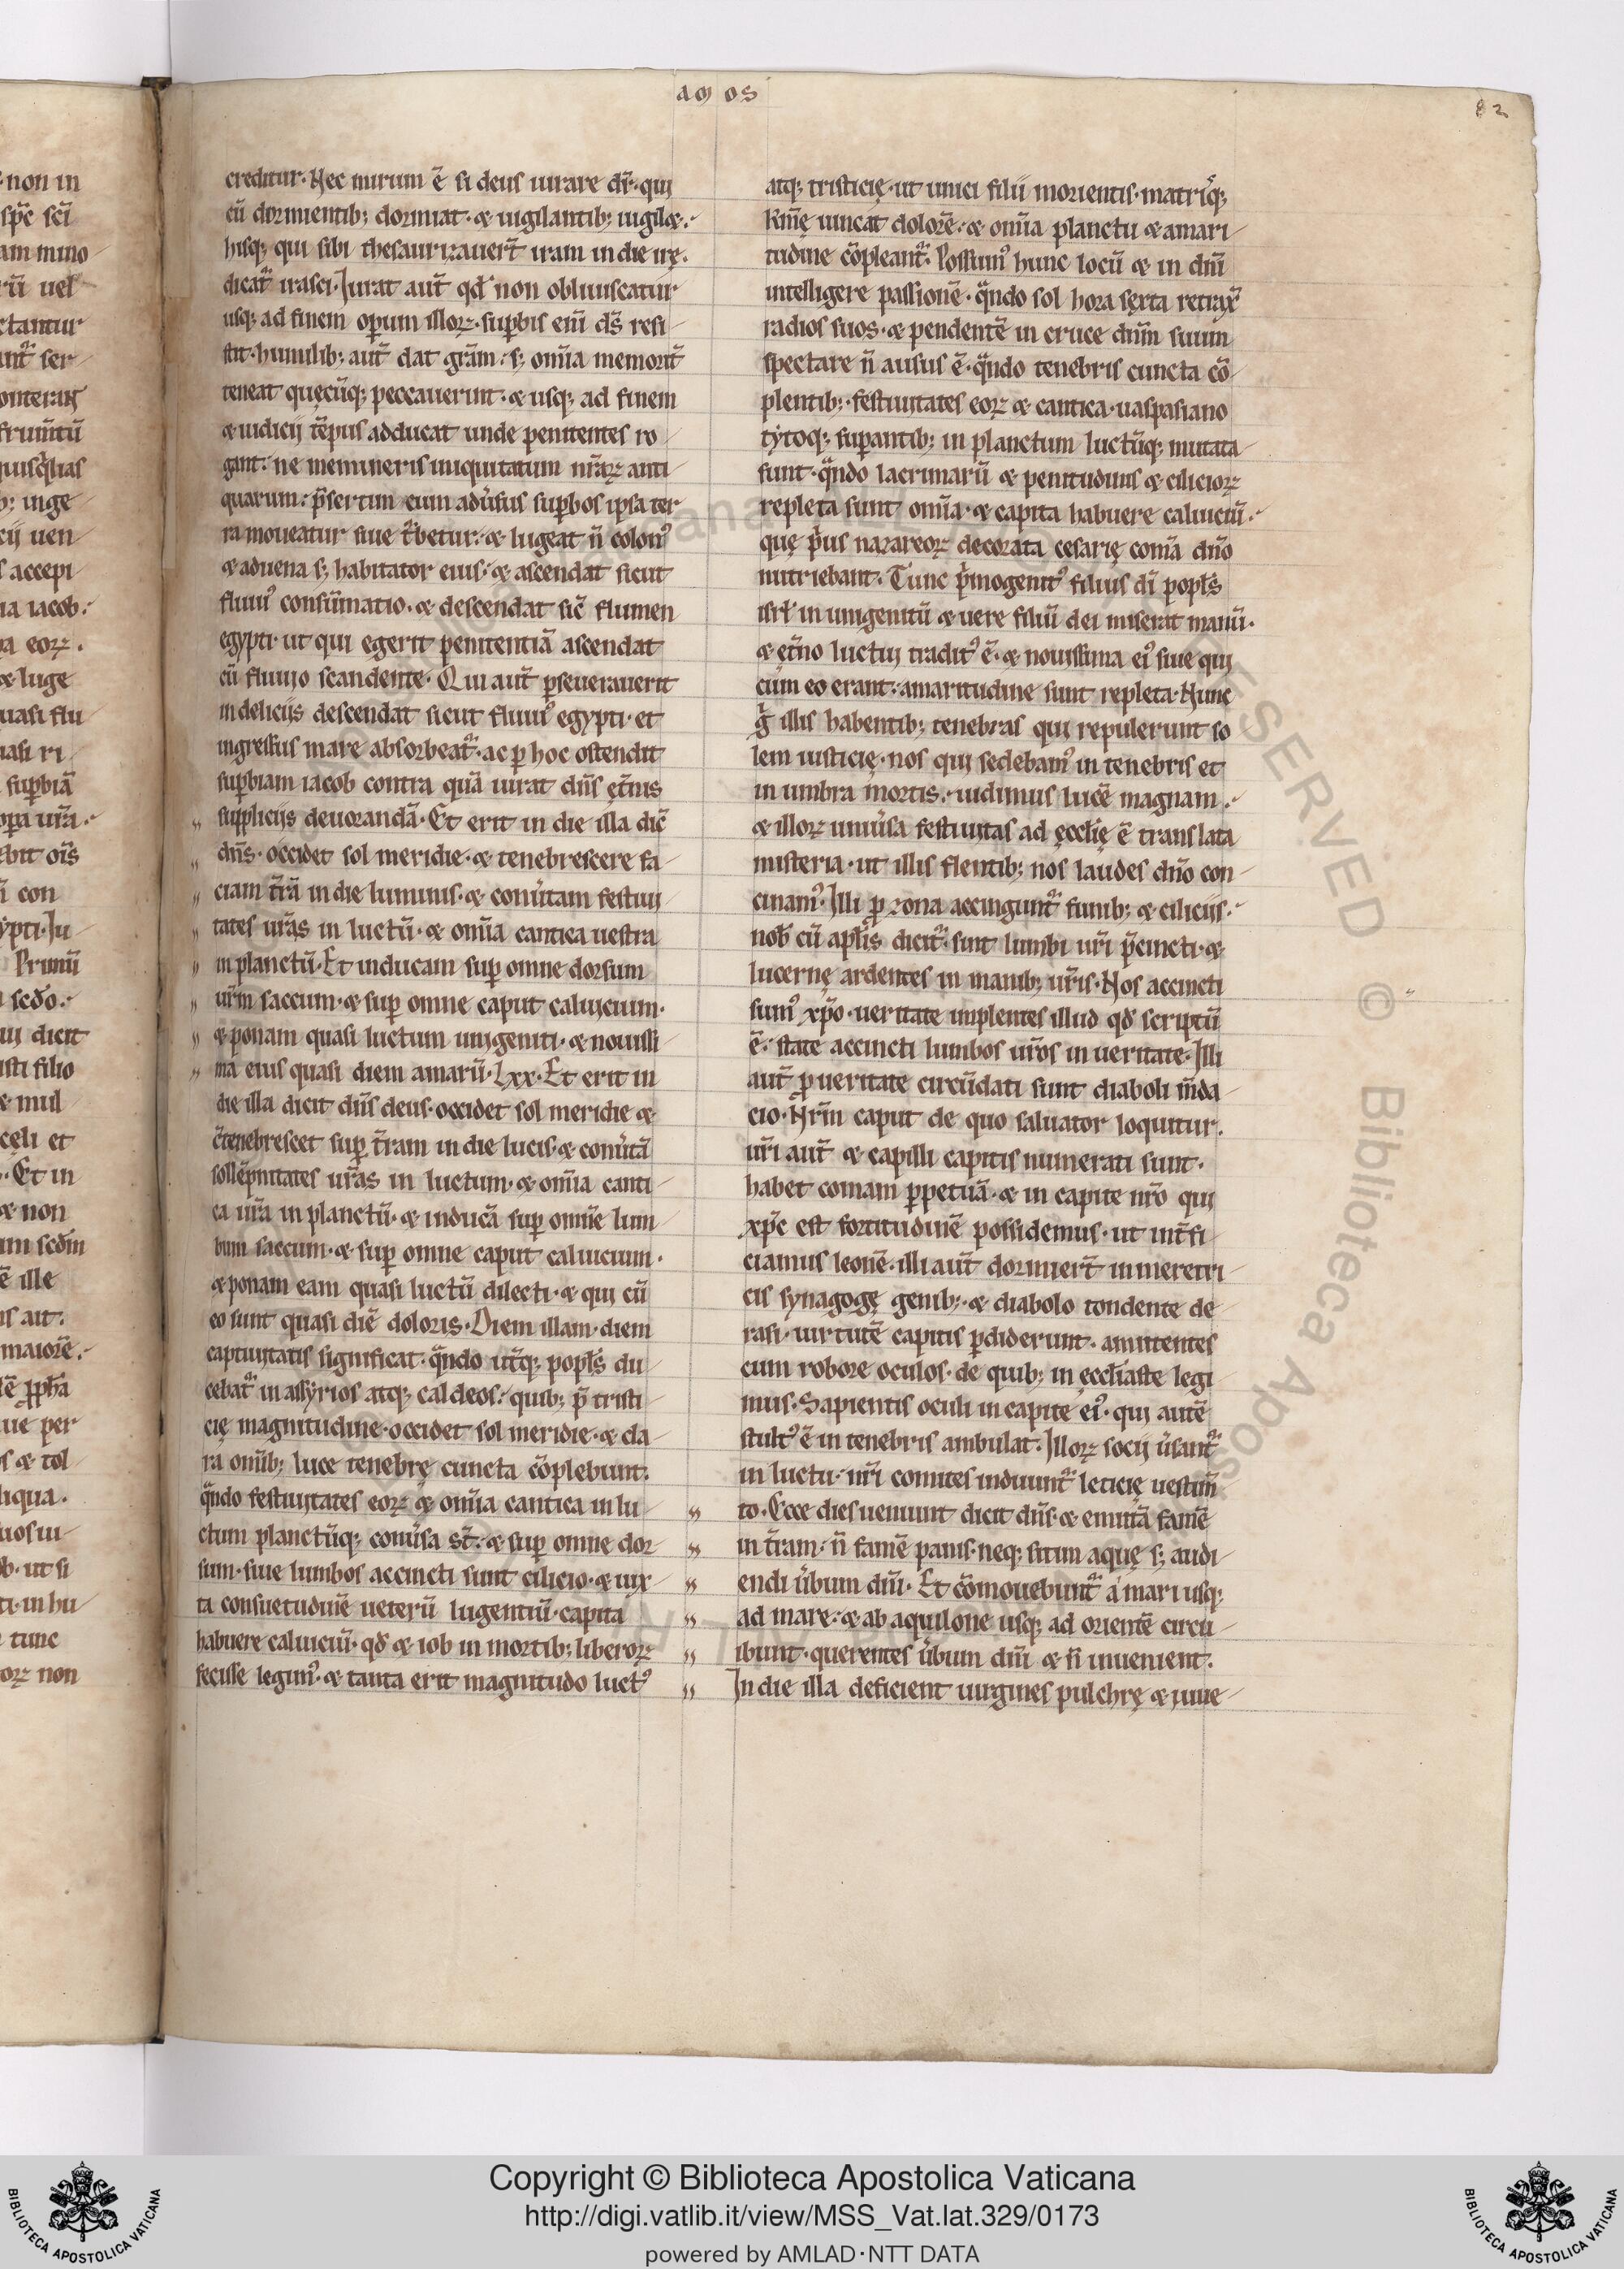 AM OS
82
creditur. Nec mirum ē si deus iurare dr̄. qui
cū dormientib; dormiat. & uigilantib; uigilet.
hisq; qui sibi thesaurizauert̄ iram in die irę.
dicat᷑ irasci. Iurat aut̄ qd̄ non obliuiscatur
usq; ad finem operum illoꝝ. suꝑbis eni̅ ds̄ resi
stit. humilib; aut̄ dat gr̄am. s; om̄ia memorit̄
teneat quęcūq; peccauerunt. & usq; ad finem
& iudicij tēpus adducat unde penitentes ro
gant. ne memineris iniquitatum nr̄aꝝ anti
quarum. p̄sertim cum adūsus suꝑbos ipsa ter
ra moueatur siue t᷑betur. & lugeat n̄ colon᷒
& aduena s; habitator eius. & ascendat sicut
fluui᷒ consūmatio. & descendat sic̄ flumen
egypti. ut qui egerit penitentiā ascendat
cū fluuio scandente. Qui aut̄ ꝑseuerauerit
in delicijs descendat sicut fluui᷒ egypti. et
ingressus mare absorbeat᷑. ac ꝑ hoc ostendit
suꝑbiam iacob contra quā iurat dn̄s ęt̄nis
supplicijs deuorandā. Et erit in die illa dic̄
dn̄s. occidet sol meridie. & tenebrescere fa
ciam t̄rā in die luminis. & conūtam festiui
tates ur̄as in luctū. & om̄ia cantica uestra
in planctū. Et inducam suꝑ omne dorsum
ur̄m saccum. & suꝑ omne caput caluicium.
& ponam quasi luctum unigeniti. & nouissi
ma eius quasi diem amarū. Lxx. Et erit in
die illa dicit dn̄s deus. occidet sol meridie &
c̄tenebrescet suꝑ t̄ram in die lucis. & conūtā
sollēpnitates ur̄as in luctum. & om̄ia canti
ca ur̄a in planctū. & inducā suꝑ omn̄e lum
bum saccum. & suꝑ omne caput caluicium.
& ponam eam quasi luctū dilecti. & qui cū
eo sunt quasi diē doloris. Diem illam. diem
captiuitatis significat. qn̄do ut̄q; popl̄s du
cebat᷑ in assyrios atq; caldeos. quib; p̄ tristi
cię magnitudine. occidet sol meridie. & cla
ra omīb; luce tenebrę cuncta cōplebunt.
qn̄do festiuitates eoꝝ & om̄ia cantica in lu
ctum planctūq; conūsa st̄. & suꝑ omne dor
sum. siue lumbos accincti sunt cilicio. & iux
ta consuetudinē ueterū lugentiū. capita
habuere caluiciū. qd̄ & iob in mortib; liberoꝝ
fecisse legim᷒. & tanta erit magnitudo luct᷒
atq; tristicię. ut unici filii morientis. matriq̄;
km̄ę uincat dolorē. & om̄ia planctu & amari
tudine cōpleant᷑. Possum᷒ hunc locū & in dn̄i
intelligere passionē. qn̄do sol hora sęxta retrax̄
radios suos. & pendentē in cruce dn̄m suum
spectare n̄ ausus ē. qn̄do tenebris cuncta cō
plentib;. festiuitates eoꝝ & cantica. uaspasiano
tytoq; suꝑantib; in planctum luctūq; mutata
sunt. qn̄do lacrimarū & penitudinis & cilicioꝝ
repleta sunt om̄ia. & capita habuere caluiciū.
quę p̄us nazareoꝝ decorata cesarię comā dn̄o
nutriebant. Tunc p̄mogenit᷒ filius di̅ popl̄s
isrl̄ in unigenitū & uere filiū dei miserat manū.
& ęt̄no luctui tradit᷒ ē. & nouissima ei᷒ siue qui
cum eo erant. amaritudine sunt repleta. Nunc
g̊ illis habentib; tenebras qui repulerunt so
lem iusticię. nos qui sedebam᷒ in tenebris et
in umbra mortis. uidimus lucē magnam.
& illoꝝ uniūsa festiuitas ad ęccl̄ię ē translata
misteria. ut illis flentib; nos laudes dn̄o con
cinam᷒. Illi ꝓ zona accingunt᷑ funib; & cilicijs.
nob̄ cū apl̄is dicit᷑. sint lumbi ur̄i p̄cincti. &
lucernę ardentes in manib; ur̄is. Nos accincti
sum᷒ xp̄o. ueritate implentes illud qd̄ scriptū
ē. state accincti lumbos ur̄os in ueritate. Illi
aut̄ ꝓ ueritate circūdati sunt diaboli m̄da
cio. Nr̄m caput de quo saluator loquitur.
ur̄i aut̄ & capilli capitis numerati sunt.
habet comam ꝑpetuā. & in capite nr̄o qui
xp̄c est fortitudinē possidemus. ut int̄fi
ciamus leonē. illi aut̄ dormiert̄ in meretri
cis synagogę genib;. & diabolo tondente de
rasi. uirtutē capitis ꝑdiderunt. amittentes
cum robore oculos. de quib; in ęccl̄iaste legi
mus. Sapientis oculi in capite ei᷒. qui autē
stult᷒ ē in tenebris ambulat. Illoꝝ socij ūsant᷑
in luctu. nr̄i comites induunt᷑ leticię uestim̄
to. Ecce dies ueniunt dicit dn̄s. & emittā famē
in t̄ram. n̄ famē panis. neq; sitim aquę s; audi
endi ūbum dn̄i. Et cōmouebunt᷑ a mari usq;
ad mare. & ab aquilone usq; ad orientē circu
ibunt. querentes ūbum dn̄i & n̄ inuenient.
In die illa deficient uirgines pulchrę & iuue
Copyright © Biblioteca Apostolica Vaticana
http://digi.vatlib.it/view/MSS_Vat.lat.329/0173
powered by AMLAD·NTT DATA
BIBLIOTECA APOSTOLICA VATICANA
BIBLIOTECA APOSTOLICA VATICANA